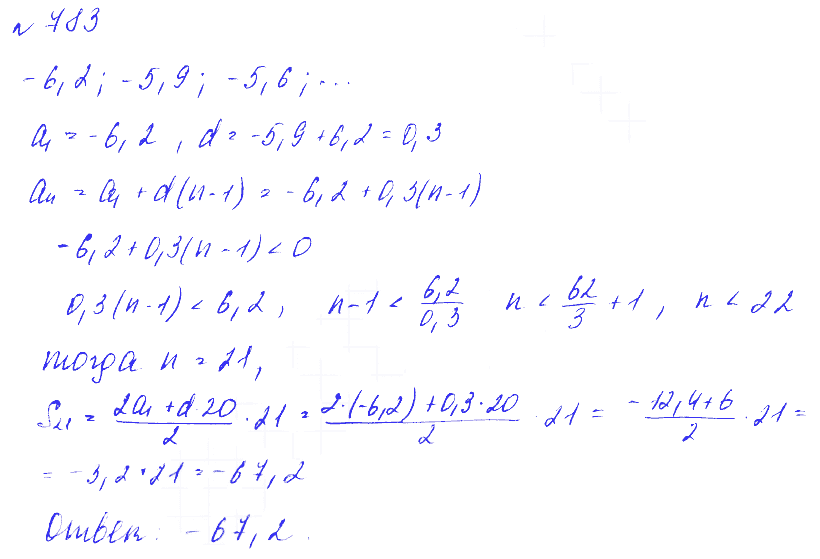 № 783
-6,2; -5,9; -5,6; ...
a₁ = -6,2, d = -5,9 + 6,2 = 0,3
aₙ = a₁ + d(n-1) = -6,2 + 0,3(n-1)
-6,2 + 0,3(n-1) < 0
0,3(n-1) < 6,2, n-1 < 6,2/0,3 n < 62/3 + 1, n < 22
тогда n = 21,
S₂₁ = (2a₁ + d·20)/2 · 21 = (2·(-6,2) + 0,3·20)/2 · 21 = (-12,4+6)/2 · 21 =
= -3,2 · 21 = -67,2
Ответ: -67,2.